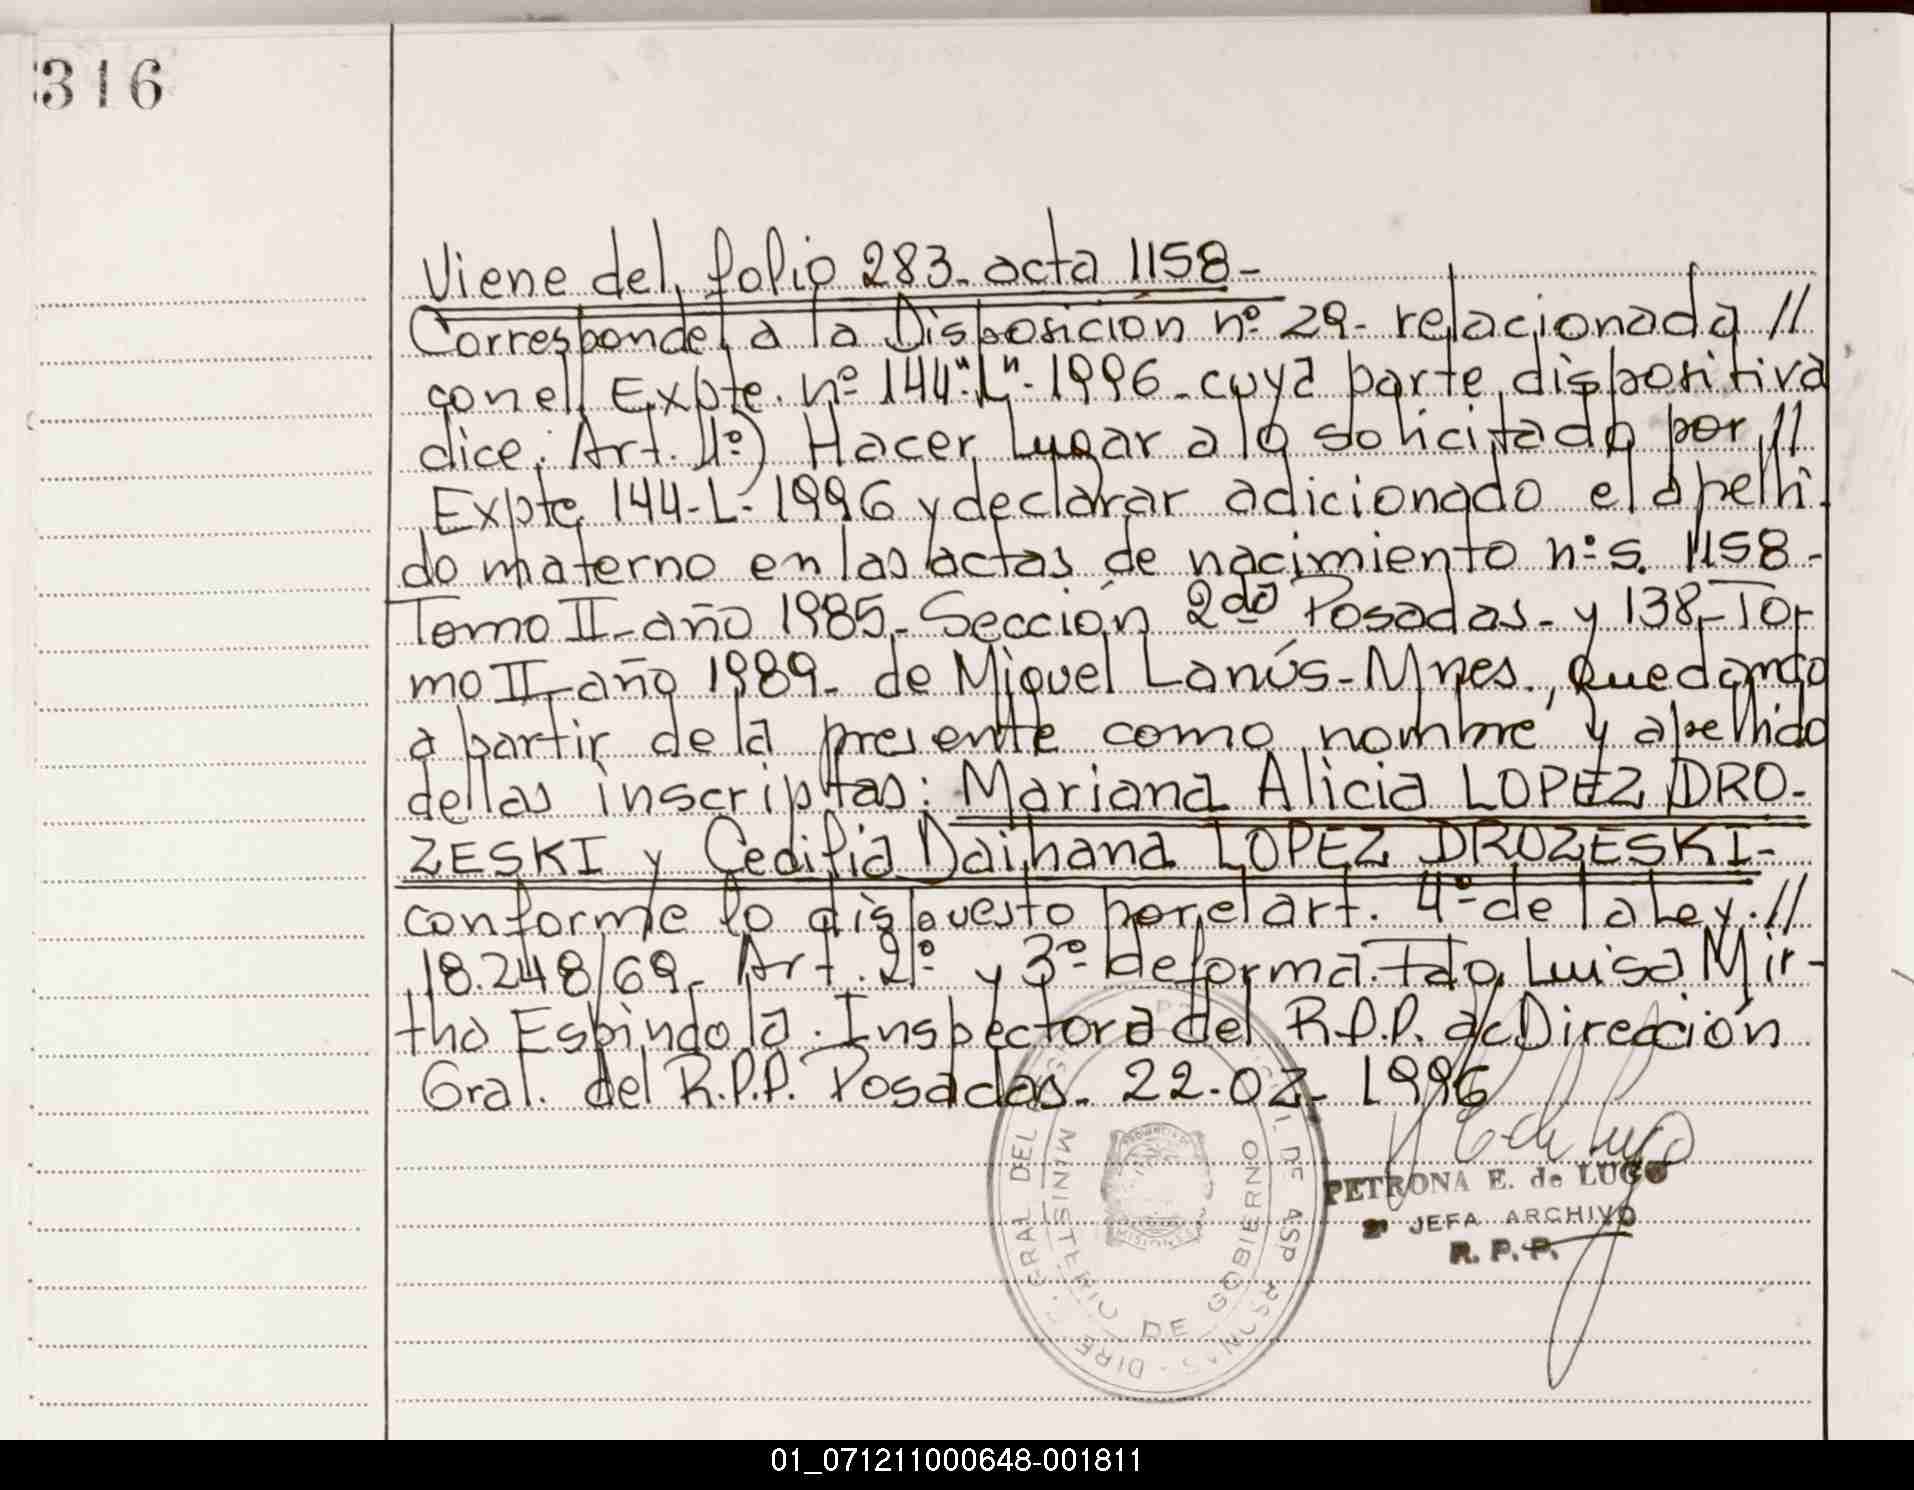 316
Viene del folio 283- acta 1158-
Corresponde a la Disposición nº 29- relacionada //
con el Expte. nº 144"L"- 1996- cuya parte dispositiva
dice: Art. 1º) Hacer lugar a lo solicitado por //
Expte 144-L- 1996 y declarar adicionado el apelli-
do materno en las actas de nacimiento nºs. 1158-
Tomo II- año 1985- Sección 2da Posadas- y 138- To-
mo II- año 1989- de Miguel Lanús- Mnes., Quedando
a partir de la presente como nombre y apellido
de las inscriptas: Mariana Alicia LOPEZ DRO-
ZESKI y Cedilia Daihana LOPEZ DROZESKI-
conforme lo dispuesto por el art. 4º de la Ley. //
18.248/69- Art. 2º y 3º de forma. Fdo. Luisa Mir-
tha Espindola. Inspectora del R.P.P. a/c Dirección
Gral. del R.P.P. Posadas- 22-02- 1996
PETRONA E. de LUGO
2º JEFA ARCHIVO
R. P. P.
GRAL DEL
DE ASP
MINISTERIO DE GOBIERNO
PROVINCIA DE
MISIONES
01_071211000648-001811